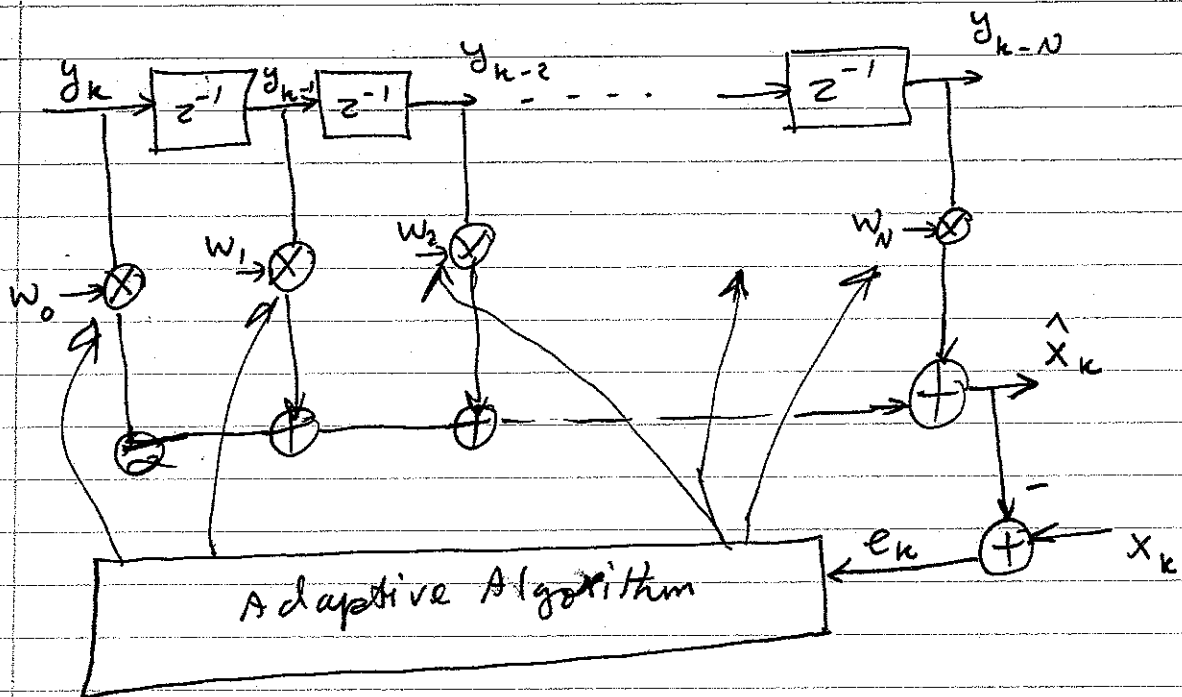 y_k z⁻¹ y_{k-1} z⁻¹ y_{k-2} - - - - z⁻¹ y_{k-N}
w_0 w_1 w_2 w_N
x̂_k
-
e_k x_k
Adaptive Algorithm